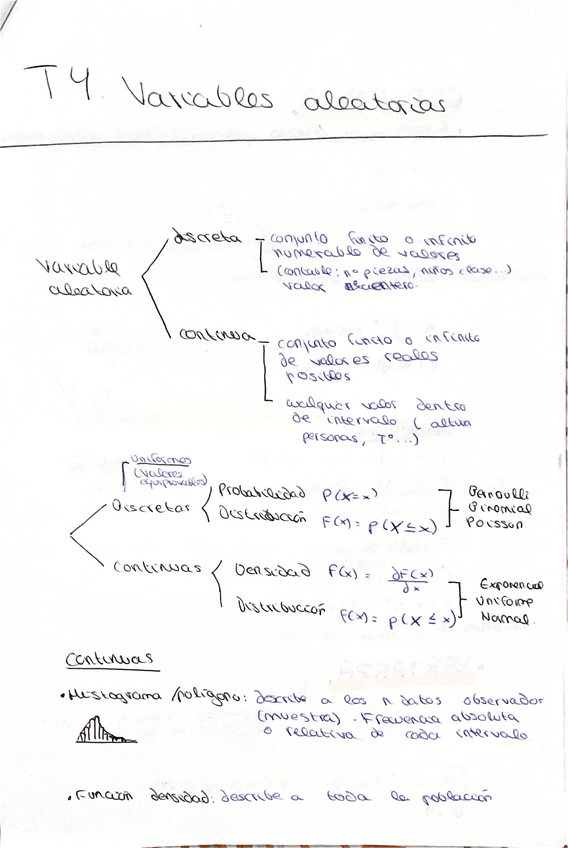 T4. Variables aleatorias
Variable
aleatoria
discreta
conjunto finito o infinito
numerable de valores
(contable: nº piezas, niños clase...)
valor
continua
conjunto finito o infinito
de valores reales
posibles
cualquier valor dentro
de intervalo (altura
personas, Tº...)
Uniformes
(valores
equiprobables)
Discretas
Probabilidad P(X=x)
Distribución F(x) = P(X≤x)
Bernoulli
Binomial
Poisson
Continuas
Densidad F(x) = ∂F(x)/∂x
Distribución F(x) = P(X≤x)
Exponencial
Uniforme
Normal.
Continuas
• Histograma/polígono: describe a los n datos observador
(muestra). Frecuencia absoluta
o relativa de cada intervalo
• Función densidad: describe a toda la población